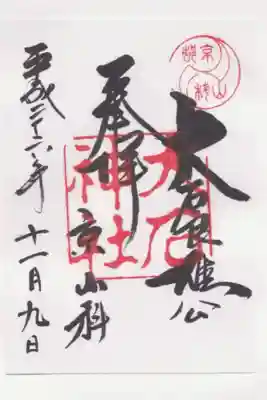 京都
山科
大石良雄公
大石
神社
奉拝 京山科
平成二十六年 十一月九日